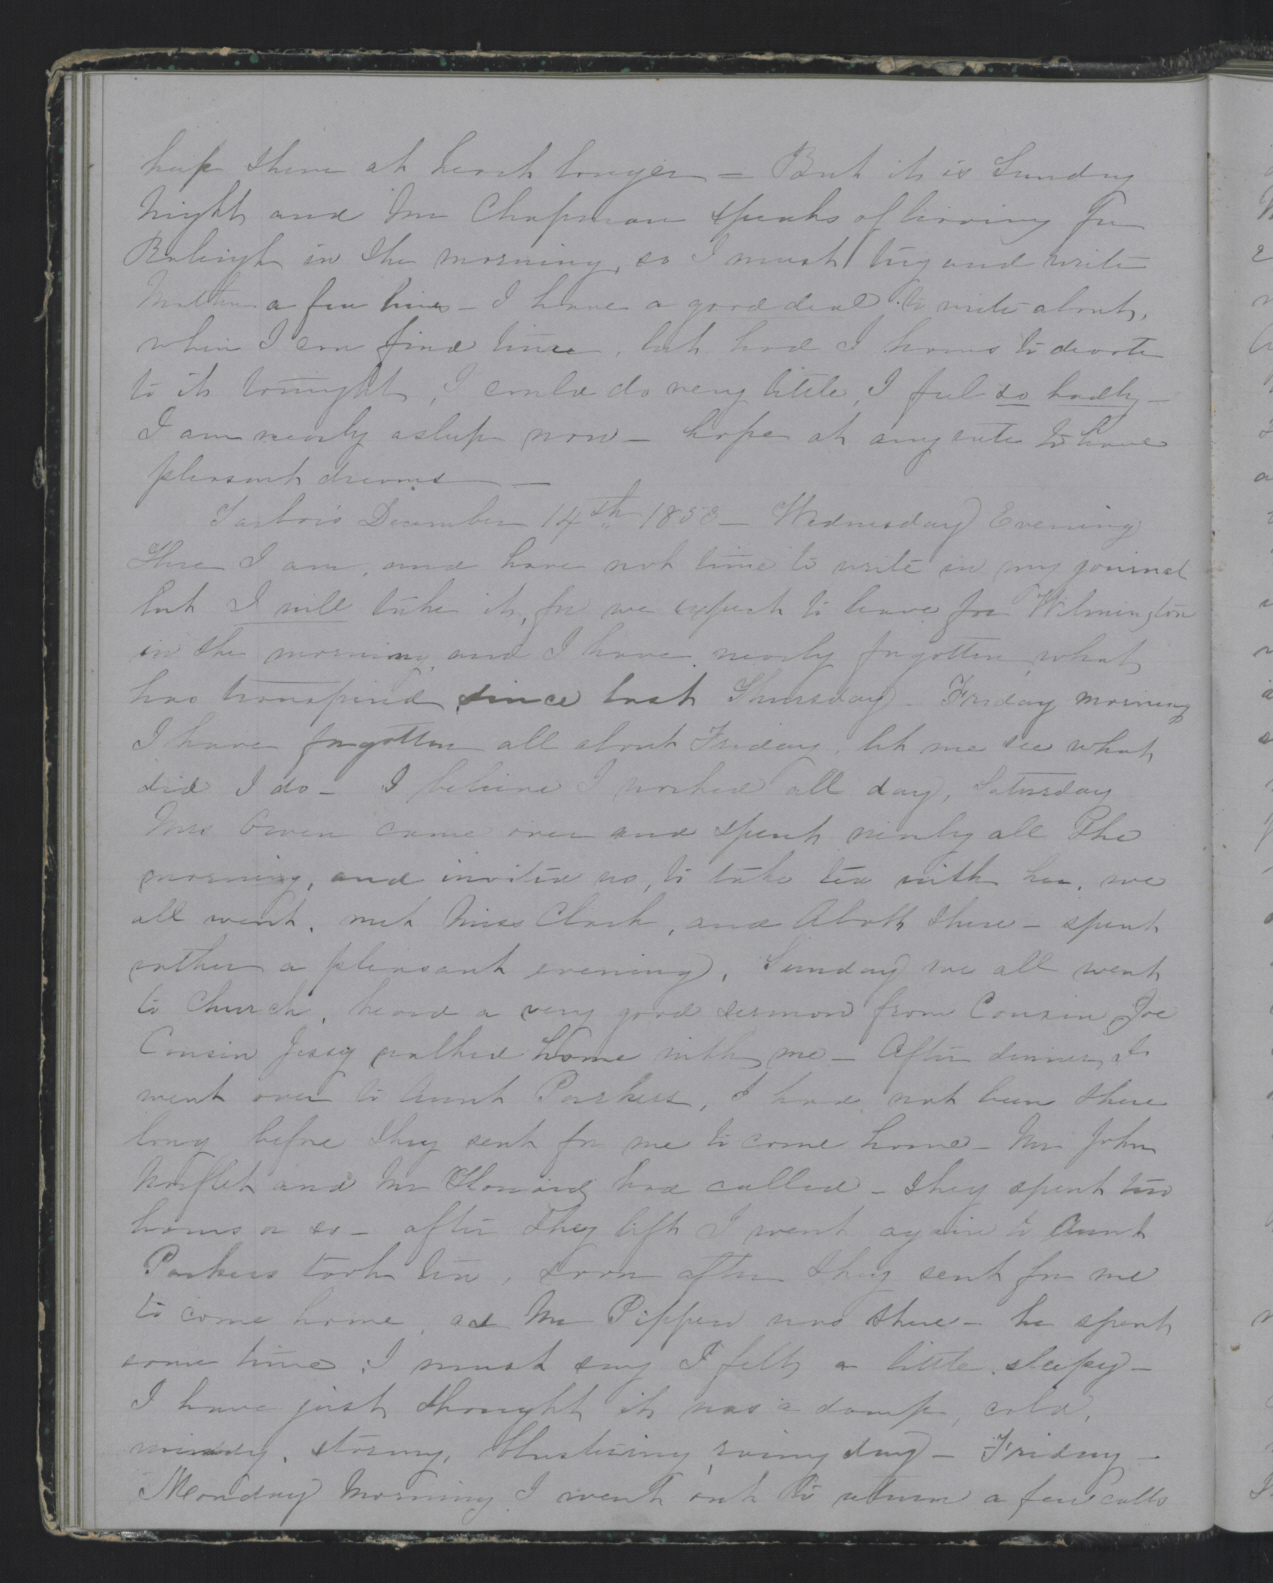 keep them at heart longer – But it is Sunday
Night and Mr Chapman speaks of leaving for
Raleigh in the morning, so I must try and write
Mother a few lines – I have a good deal to write about,
when I can find time, but had I hours to devote
to it tonight, I could do very little, I feel so badly –
I am nearly asleep now – hope at any rate to have
pleasant dreams –
Tarboro December 14th 1853 – Wednesday Evening
Here I am, and have not time to write in my journal
but I will take it, for we expect to leave for Wilmington
in the morning, and I have nearly forgotten what
has transpired since last Thursday. Friday morning
I have forgotten all about Friday, let me see what
did I do – I believe I worked all day, Saturday
Mrs Owen came over and spent nearly all the
morning, and invited us, to take tea with her, we
all went, met Miss Clark, and there – spent
rather a pleasant evening, Sunday we all went
to Church, heard a very good sermon from Cousin Joe
Cousin walked home with me – After dinner, I
went over to Aunt Parkers, I had not been there
long before they sent for me to come home – Mr John
Norflet and Mr Howard had called – they spent two
hours or so – after they left I went again to Aunt
Parkers took tea, soon after they sent for me
to come home, as Mr Pippen was there – he spent
some time, I must say I felt a little sleepy –
I have just thought it was a damp, cold,
windy, stormy, blustering, rainy day – Friday –
Monday Morning I went out to return a few calls